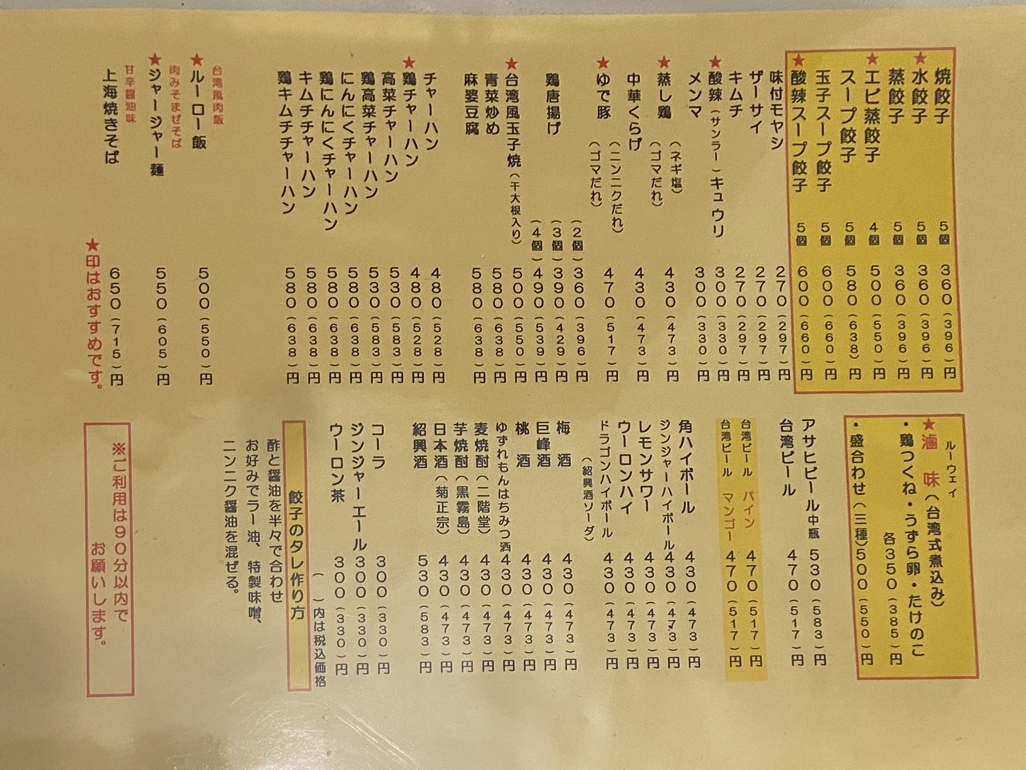 焼餃子 5個 360(396)円
★水餃子 5個 360(396)円
蒸餃子 5個 360(396)円
★エビ蒸餃子 4個 500(550)円
スープ餃子 5個 580(638)円
玉子スープ餃子 5個 600(660)円
★酸辣スープ餃子 5個 600(660)円
味付モヤシ 270(297)円
ザーサイ 270(297)円
キムチ 270(297)円
★酸辣(サンラー)キュウリ 300(330)円
メンマ 300(330)円
★蒸し鶏(ネギ塩) 430(473)円
(ゴマだれ)
中華くらげ 430(473)円
★ゆで豚(ニンニクだれ) 470(517)円
(ゴマだれ)
鶏唐揚げ(2個)360(396)円
(3個)390(429)円
(4個)490(539)円
★台湾風玉子焼(干大根入り) 500(550)円
青菜炒め 580(638)円
麻婆豆腐 580(638)円
チャーハン 480(528)円
★鶏チャーハン 480(528)円
高菜チャーハン 530(583)円
鶏高菜チャーハン 530(583)円
にんにくチャーハン 580(638)円
鶏にんにくチャーハン 580(638)円
キムチチャーハン 580(638)円
鶏キムチチャーハン 580(638)円
台湾風肉飯
★ルーロー飯 500(550)円
肉みそまぜそば
★ジャージャー麺 550(605)円
甘辛醤油味
上海焼きそば 650(715)円
★印はおすすめです。
ルーウェイ
★滷 味(台湾式煮込み)
・鶏つくね・うずら卵・たけのこ
各350(385)円
・盛合わせ(三種)500(550)円
アサヒビール中瓶 530(583)円
台湾ビール 470(517)円
台湾ビール パイン 470(517)円
台湾ビール マンゴー 470(517)円
角ハイボール 430(473)円
ジンジャーハイボール 430(473)円
レモンサワー 430(473)円
ウーロンハイ 430(473)円
ドラゴンハイボール 430(473)円
(紹興酒ソーダ)
梅 酒 430(473)円
巨峰酒 430(473)円
桃 酒 430(473)円
ゆずれもんはちみつ酒 430(473)円
麦焼酎(二階堂) 430(473)円
芋焼酎(黒霧島) 430(473)円
日本酒(菊正宗) 430(473)円
紹興酒 530(583)円
コーラ 300(330)円
ジンジャーエール 300(330)円
ウーロン茶 300(330)円
( )内は税込価格
餃子のタレ作り方
酢と醤油を半々で合わせ
お好みでラー油、特製味噌、
ニンニク醤油を混ぜる。
※ご利用は90分以内で
お願いします。